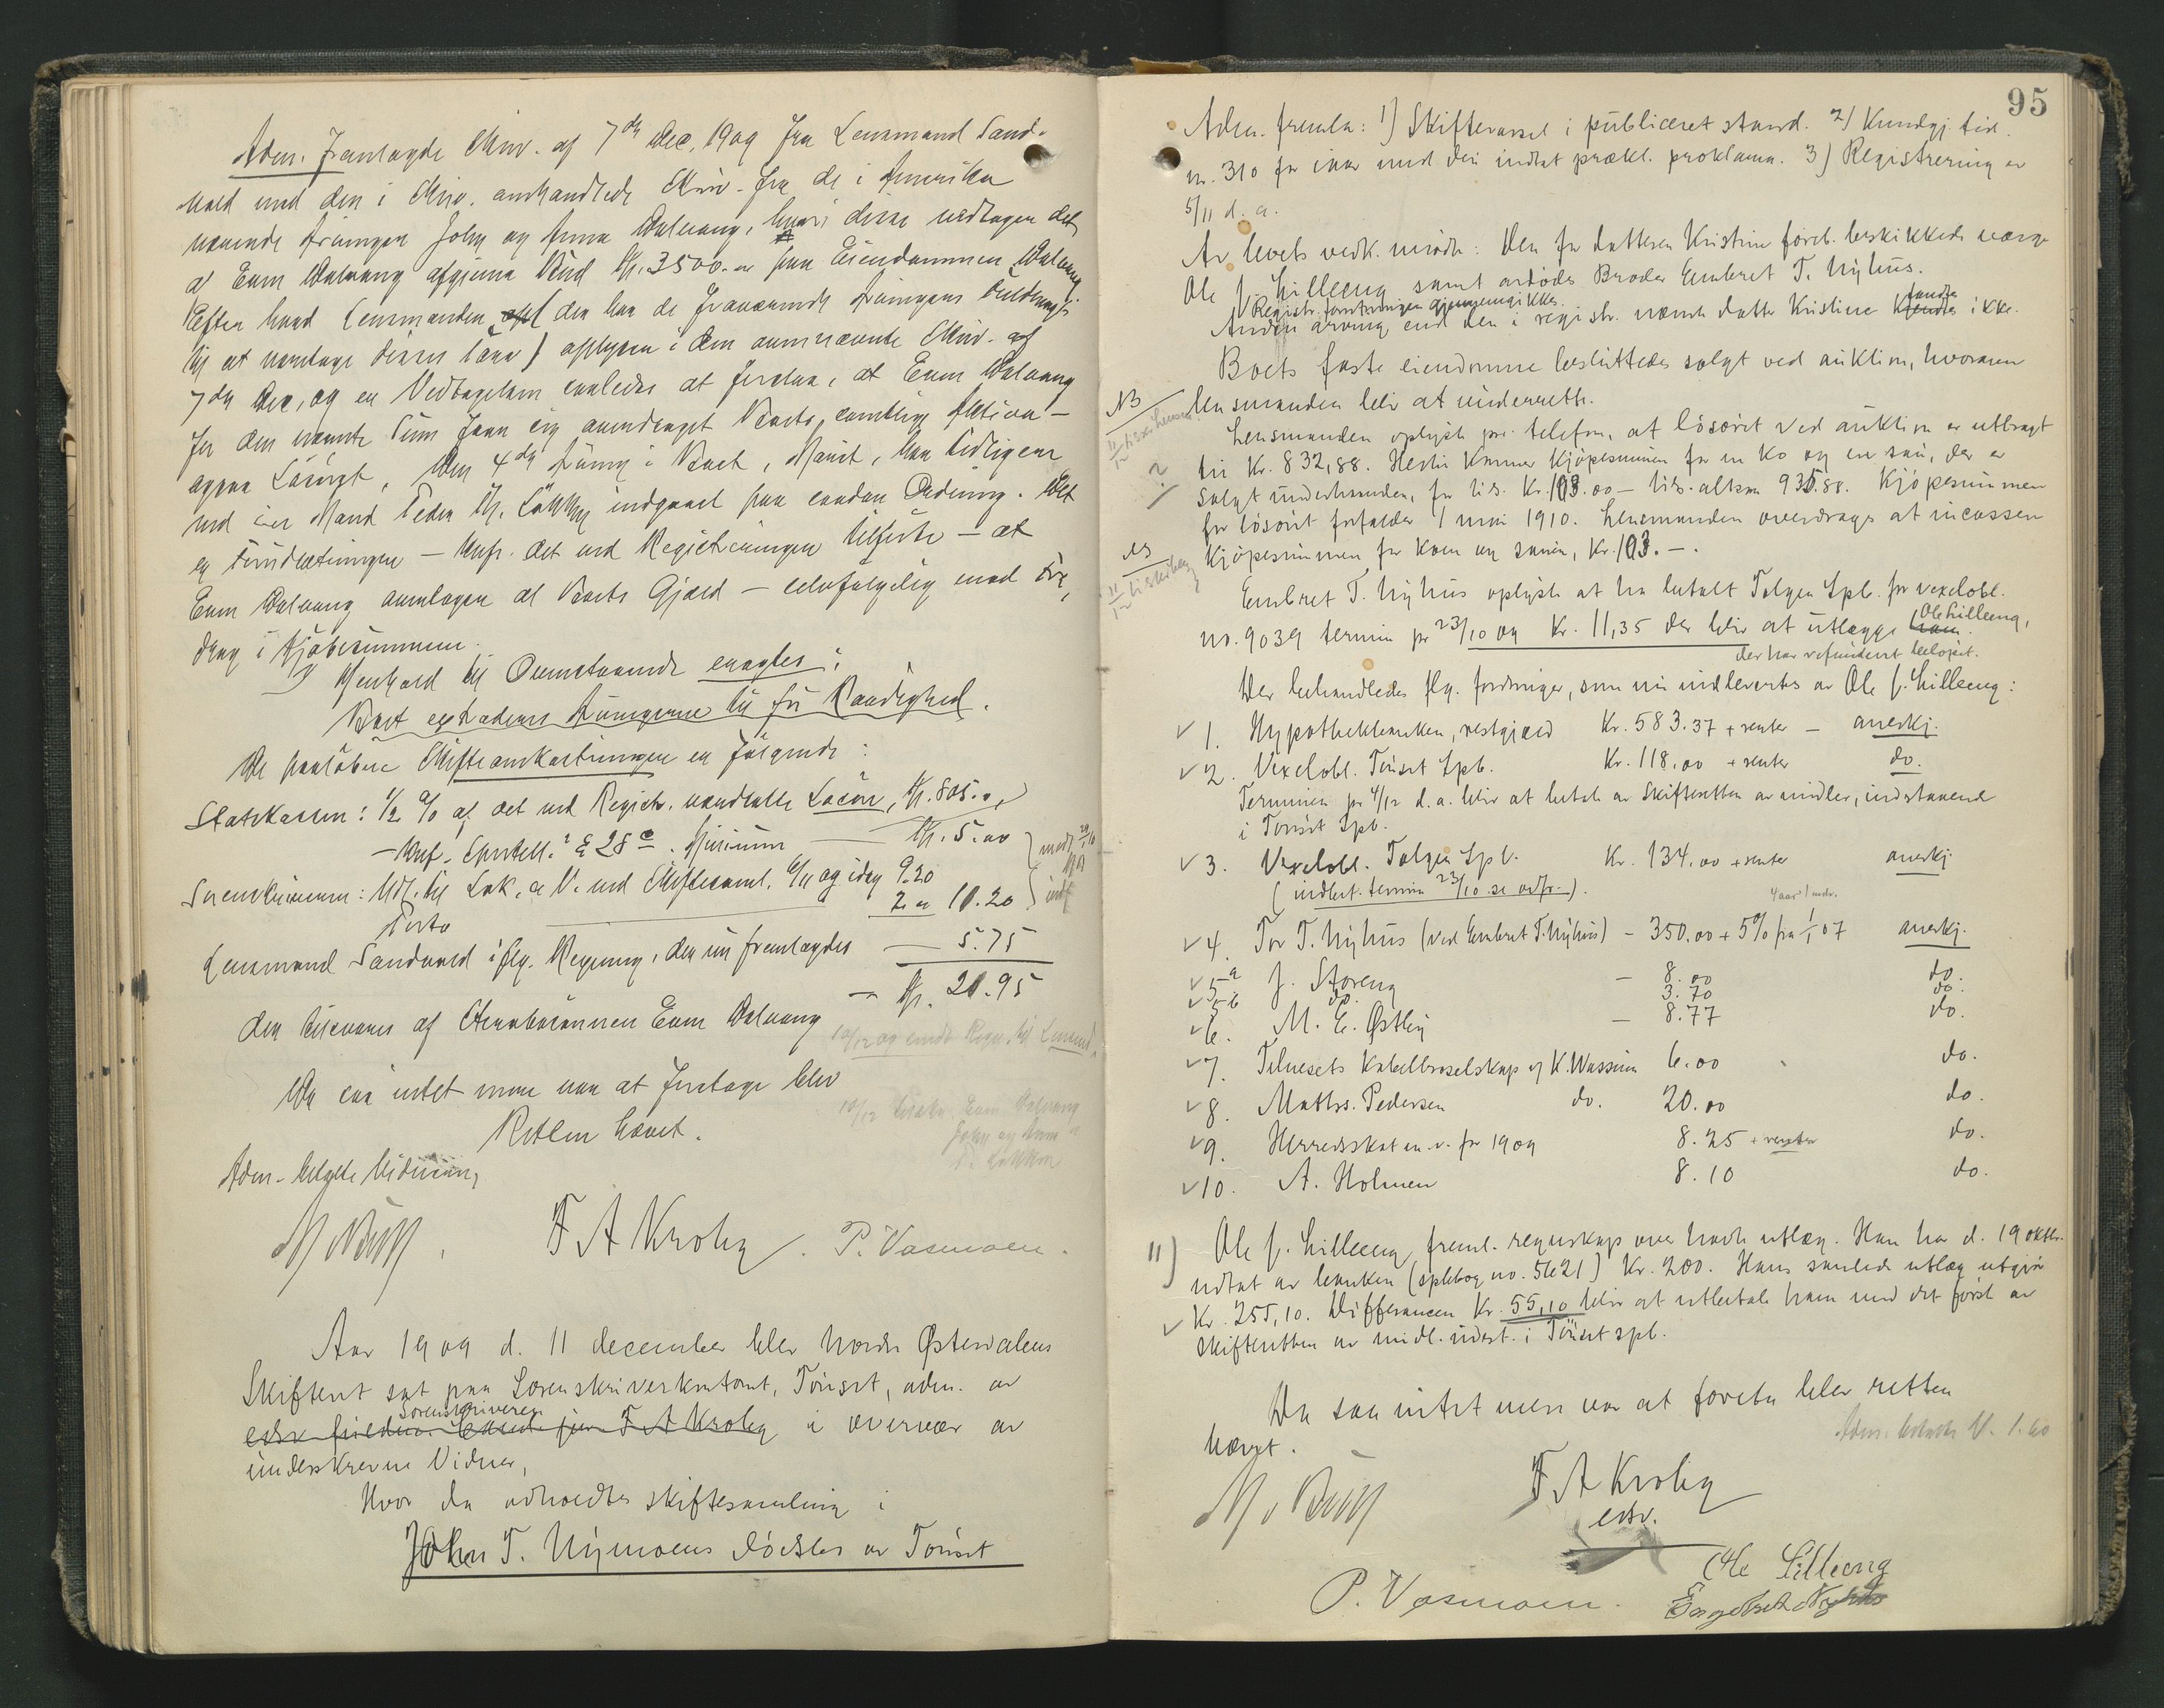 Adm. fremlagde Skriv. af 7de Dec. 1909 fra Lensmand Sand-
vold med den i Skriv. omhandlede Skriv. fra de i Amerika
værende Arvinger John og Anna Dalvang, hvori disse vedtager det
af Even Dalvang afgivne Bud Kr. 3500.00 paa Eiendommen Dalvang
Efter hvad Lensmanden (der har de fraværende Arvingers Fuldmagt
til at varetage disses Tarv) oplyser i den ovennævnte Skriv. af
7de Dec, og er Vedtagelsen saaledes at forstaa, at Even Dalvang
for den nævnte Sum faar sig overdraget Boets samtlige Aktiva –
ogsaa Løsøret, Den 4de Arving i Boet, Marit, har tidligere
med sin Mand Peder Løkken indgaaet paa saadan Ordning. Det
er Forudsætningen – Konf. det ved Registreringen tilførte – at
Even Dalvang overtager al Boets Gjæld – selvfølgelig mod Fra-
drag i Kjøbesummen.
I Henhold til Ovenstaaende eragtes:
Boet extraderes Arvingerne til fri Raadighed.
De paaløbne Skifteomkostninger er følgende:
Statskassen: 1/2 % af det ved Registr. vurderte Løsøre, Kr. 805.00
– Konf. Sportell. § 28 Minimum — Kr. 5.00
Sorenskriveren: Udl. til Lok. & V. ved Skiftesaml. 6/11 og idag 9.20
Porto 10.20
Lensmand Sandvold ifølg. Regning, der nu fremlagdes — 5.75
— Kr. 20.95
der tilsvares af Stervboinnen Even Dalvang
10/12 og sendt Regn. til Lensmd.
Da saa intet mere var at foretage blev
Retten hævet.
10/12 Even Dalvang
John og Anna
Løkken
Adm. betalte Vidnerne,
F A Krohg. P. Vasmoen.
Aar 1909 d. 11 december blev Nordre Østerdalens
Skifteret sat paa Sorenskriverkontoret, Tönset, adm. av
Sorenskriveren
F A Krohg i overvær av
underskrevne Vidner,
Hvor da avholdtes skiftesamling i
John T. Nymoens dödsbo av Tönset
95
Adm. fremla: 1) Skiftevarsel i publiceret stand. 2) Kundgj. tid.
nr. 310 for iaar med deri indtat prækl. proklama. 3) Registrering av
5/11 d. a.
Av boets vedk. mödte: Den for datteren Kristine foreb. beskikkede værge
Ole J. Lilleeng samt avdödes Broder Embret T. Nyhus.
Registr. forretningen gjennemgikkes.
Anden arving end den i registr. nævnte datter Kristine fandtes ikke.
Boets faste eiendomme besluttedes solgt ved auktion, hvorom
NB lensmanden blir at underrette.
Lensmanden oplyste pr. telefon, at lösöret ved auktion er utbragt
? til Kr. 832,88. Hertil kommer kjöpesummen for en ko og en sau, der er
solgt underhaanden, for tils. Kr. 103.00 – tils. altsaa 935.88. Kjöpesummen
for lösöret forfalder 1 mai 1910. Lensmanden overdrages at incassere
NB kjöpesummen for koen og sauen, Kr. 103.–.
Embret T. Nyhus oplyste at ha betalt Tolgen Spb. for vexelobl.
no. 9039 termin pr 23/10 09 Kr. 11,35 der blir at utlægge Ole Lilleeng,
der har refunderet belöpet.
Der behandledes flg. fordringer, som nu indlevertes av Ole J. Lilleeng:
✓ 1. Hypothekbanken, restgjæld Kr. 583.37 + renter – anerkj.
✓ 2. Vexelobl. Tönset Spb. Kr. 118.00 + renter do.
Terminen pr 4/12 d. a. blir at betale av Skifteretten av midler, indstaaende
i Tönset Spb.
✓ 3. Vexelobl. Tolgen Spb. Kr. 134.00 + renter anerkj
(indbet. termin 23/10 se ovfr.).
4 aar 1 mdr.
✓ 4. Tor T. Nyhus (ved Embret T. Nyhus) – 350.00 + 5% fra 1/1 07 anerkj.
✓ 5a J. Storeng – 8.00 do.
✓ 5b do. 3.70 do.
✓ 6. M. E. Østby – 8.77 do.
✓ 7. Telnesets Kabelbroselskap v/ K. Wassum 6.00 do.
✓ 8. Maths. Pedersen do. 20.00 do.
✓ 9. Herredsskat m. v. for 1909 8.25 + renter do.
✓ 10. A. Holmen 8.10 do.
11) Ole J. Lilleeng freml. regnskap over havte utlæg. Han har d. 19 oktbr.
uttat av banken (spbbog no. 5621) Kr. 200. Hans samlede utlæg utgjör
✓ Kr. 255,10. Differansen Kr. 55,10 blir at utbetale ham med det först av
Skifteretten av midl. indest. i Tönset spb.
Da saa intet mere var at foreta blev retten
hævet.
Adm. betalte V. 1.60
F A Krohg
edsv.
Ole Lilleeng
P. Vasmoen. Engebret Nyhus